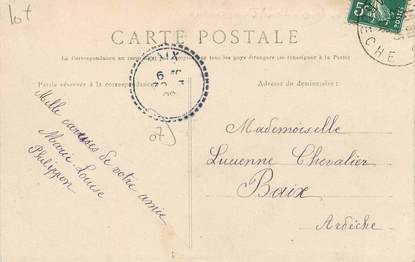 lot
5
CARTE POSTALE
La Correspondance au recto n'est pas acceptée par tous les pays étrangers (se renseigner à la Poste)
Partie réservée à la correspondance
Adresse du destinataire :
Mille caresses de votre amie
Marie Louise
Philippon
Mademoiselle
Lucienne Chevalier
Baix
Ardèche